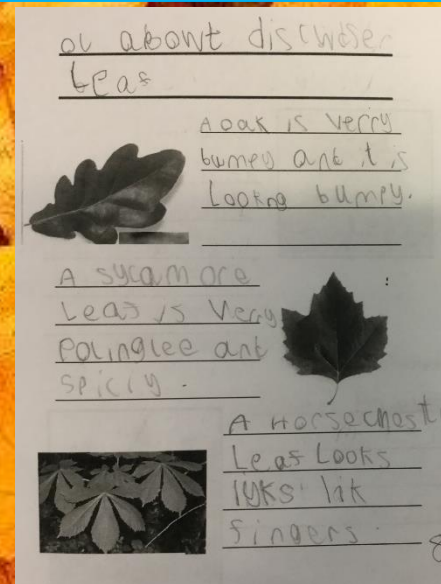 ol about
Leaf
A oak is verry
bumpy ant it is
Lookng bumpy.
A sycamore
Leaf is Verry
Polinglee ant
spicly.
A Horsechest
Leaf Looks
lyks lik
fingers.